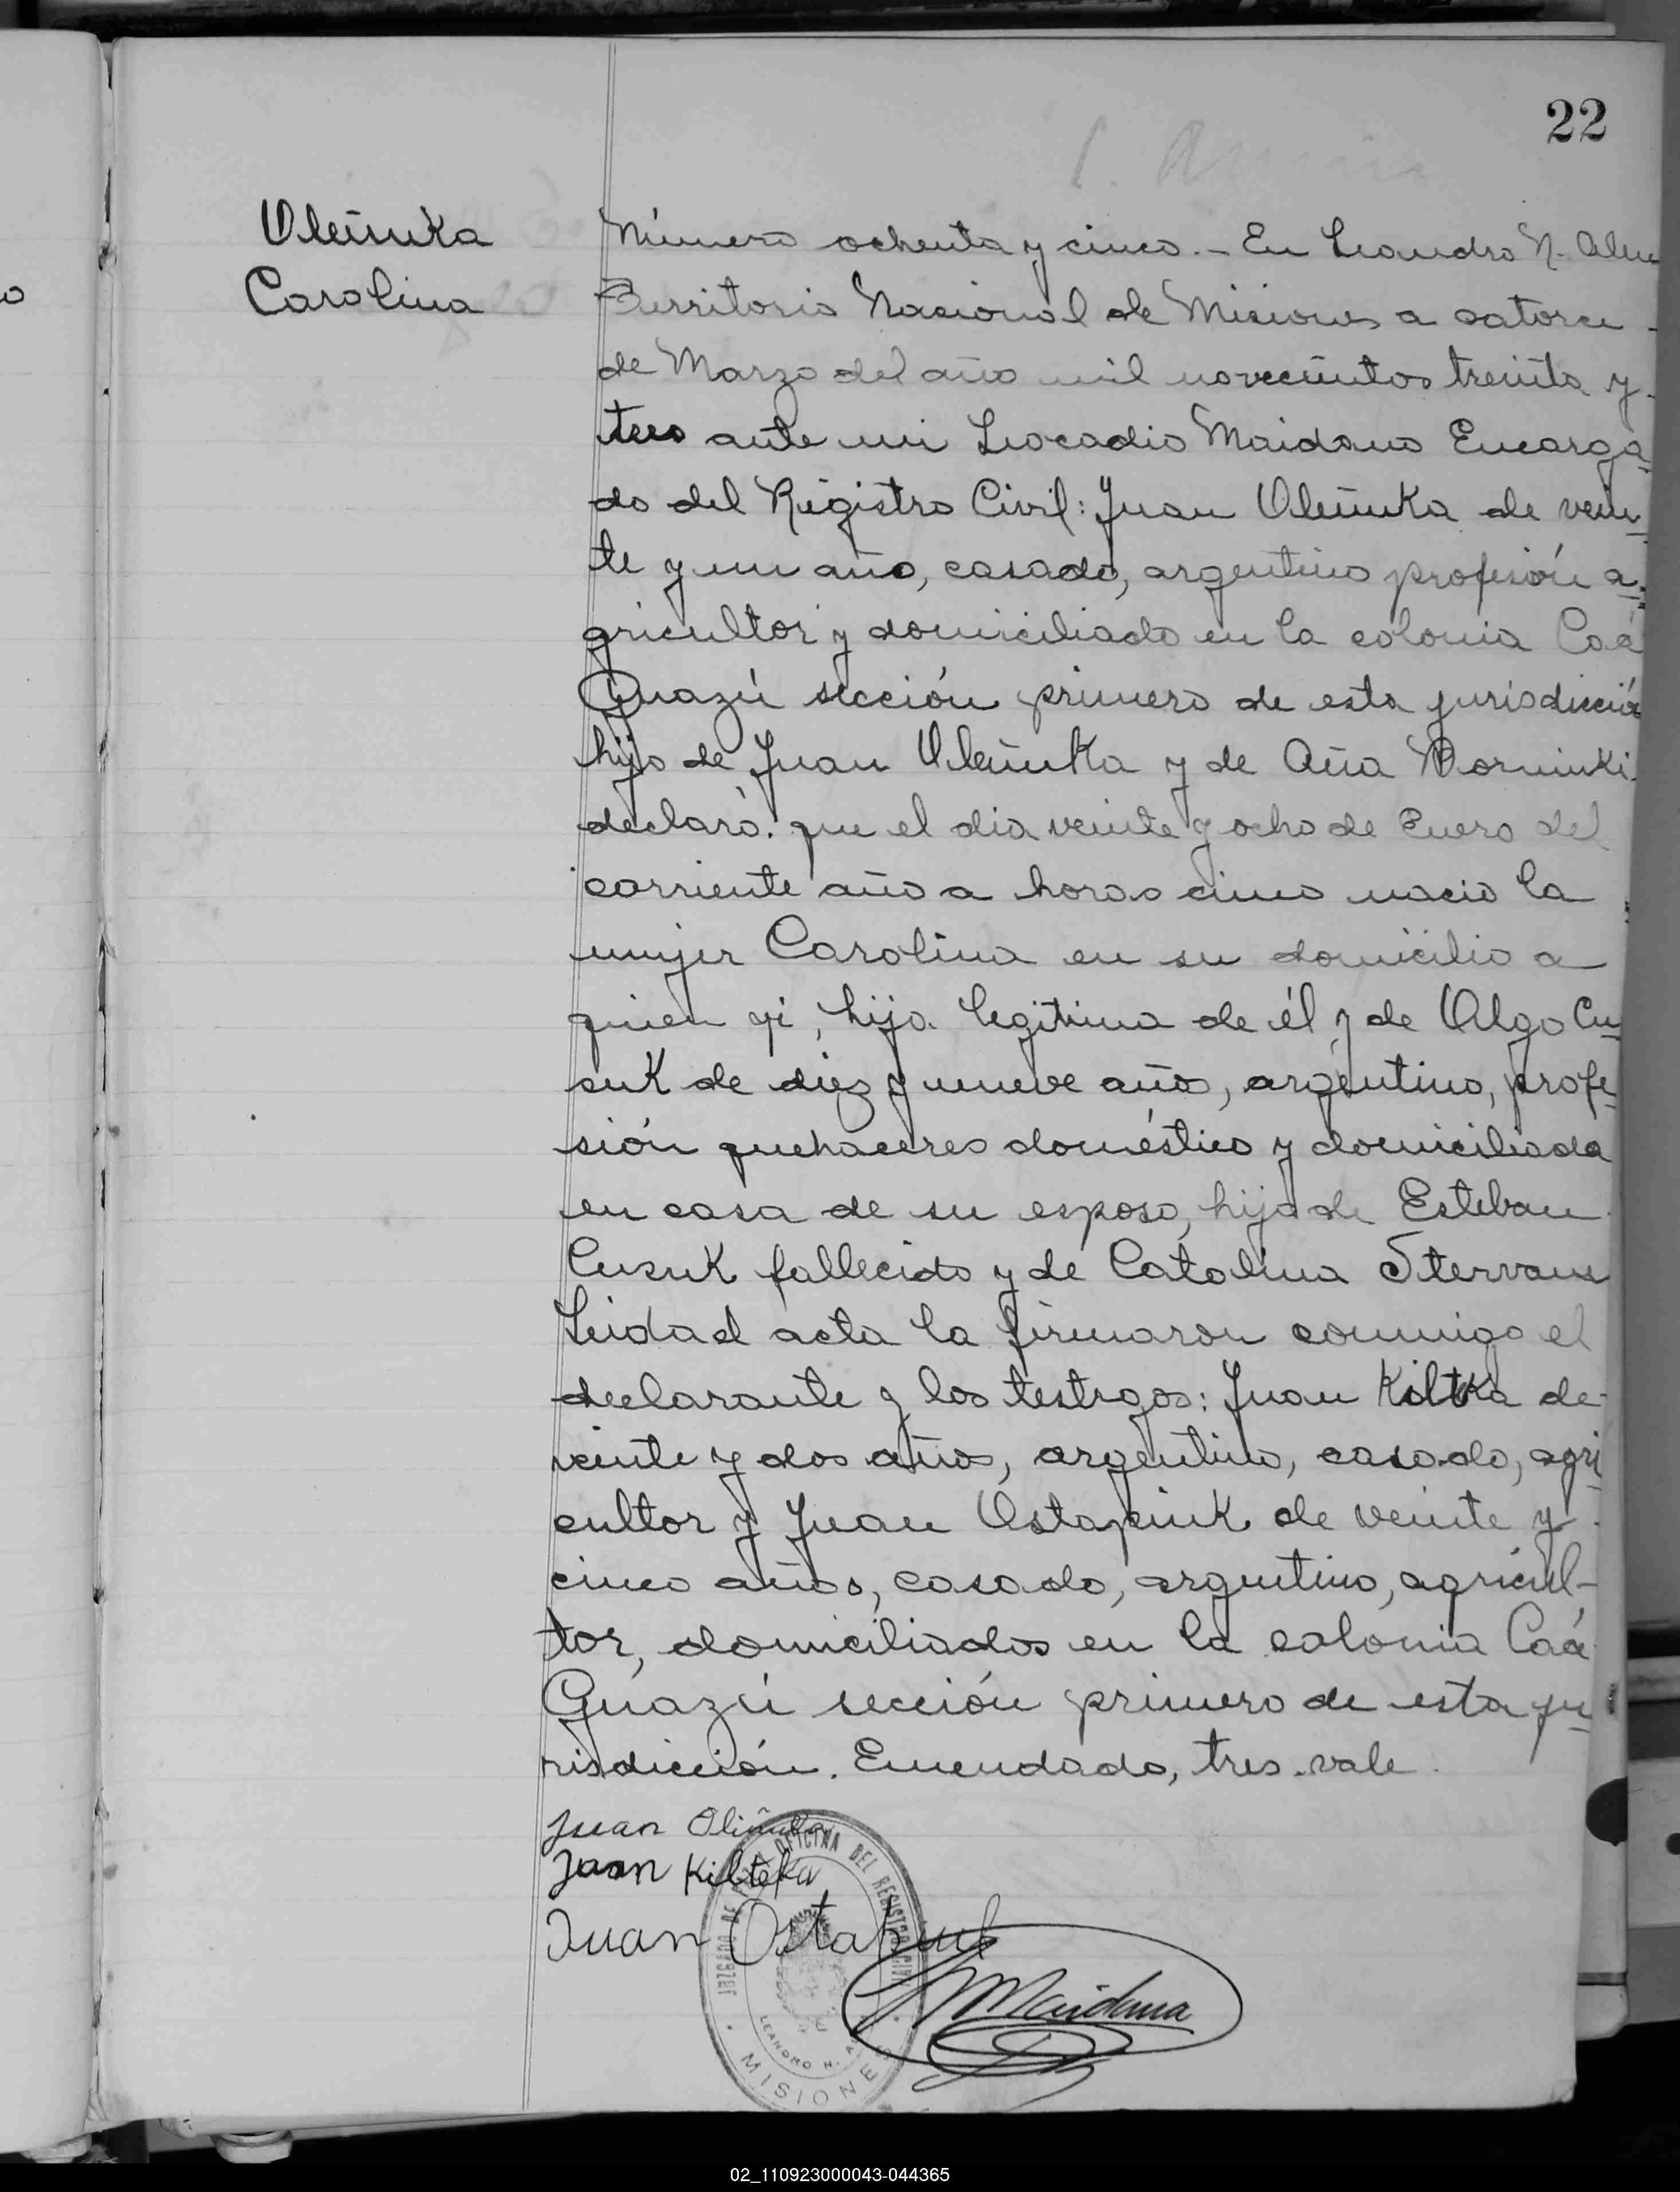 22
Oleñuka
Carolina
Número ochenta y cinco.- En Leandro N. Alem
Territorio Nacional de Misiones a catorce
de Marzo del año mil novecientos treinta y
tres ante mi Leocadio Maidana Encarga
do del Registro Civil: Juan Oleñuka de vein
te y un año, casado, argentino profesión a
gricultor y domiciliado en la colonia Caá
Guazú sección primero de esta jurisdicción
hijo de Juan Oleñuka y de Aña
declaró: que el dia veinte y ocho de Enero del
corriente año a horas cinco nacio la
mujer Carolina en su domicilio a
quien vi, hija legitima de él y de Olga Cu
suk de diez y nueve año, argentina, profe
sión quehaceres doméstico y domiciliada
en casa de su esposo, hija de Esteban
Cusuk fallecido y de Catalina
Leidad acta la firmaron conmigo el
declarante y los testigos: Juan Kiltka de
veinte y dos años, argentino, casado, agri
cultor y Juan Ostapiuk de veinte y
cinco años, casado, argentino, agricul-
tor, domiciliados en la colonia Caá
Guazú sección primero de esta ju
risdicción. Enmendado, tres. vale.
Juan Oliñuka
Juan Kilteka
Juan Ostapiuk
Maidana
JUZGADO DE PAZ Y OFICINA DEL REGISTRO CIVIL
LEANDRO N.
MISIONES
02_110923000043-044365